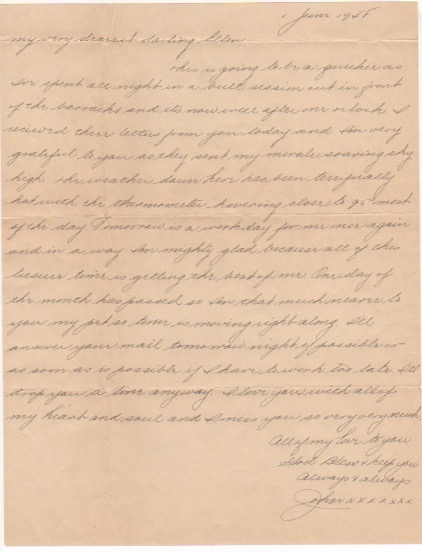 1 June 1945
My very dearest darling Ellen,
This is going to be a quickie as
I've spent all night in a bull session out in front
of the barracks and it's now well after one o'clock. I
received three letters from you today and I'm very
grateful to you as they sent my morale soaring sky
high. The weather down here has been terrifically
hot with the thermometer hovering close to 90 most
of the day. Tomorrow is a workday for me once again
and in a way I'm mighty glad because all of this
leisure time is getting the best of me. One day of
the month has passed so I'm that much nearer to
you my pet so time is moving right along. I'll
answer your mail tomorrow night if possible or
as soon as is possible if I have to work too late. I'll
drop you a line anyway. I love you with all of
my heart and soul and I miss you so very very much
All of my love to you
God Bless & keep you
Always & always
John xxxxxxx